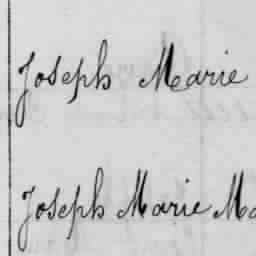 Joseph Marie
Joseph Marie Ma